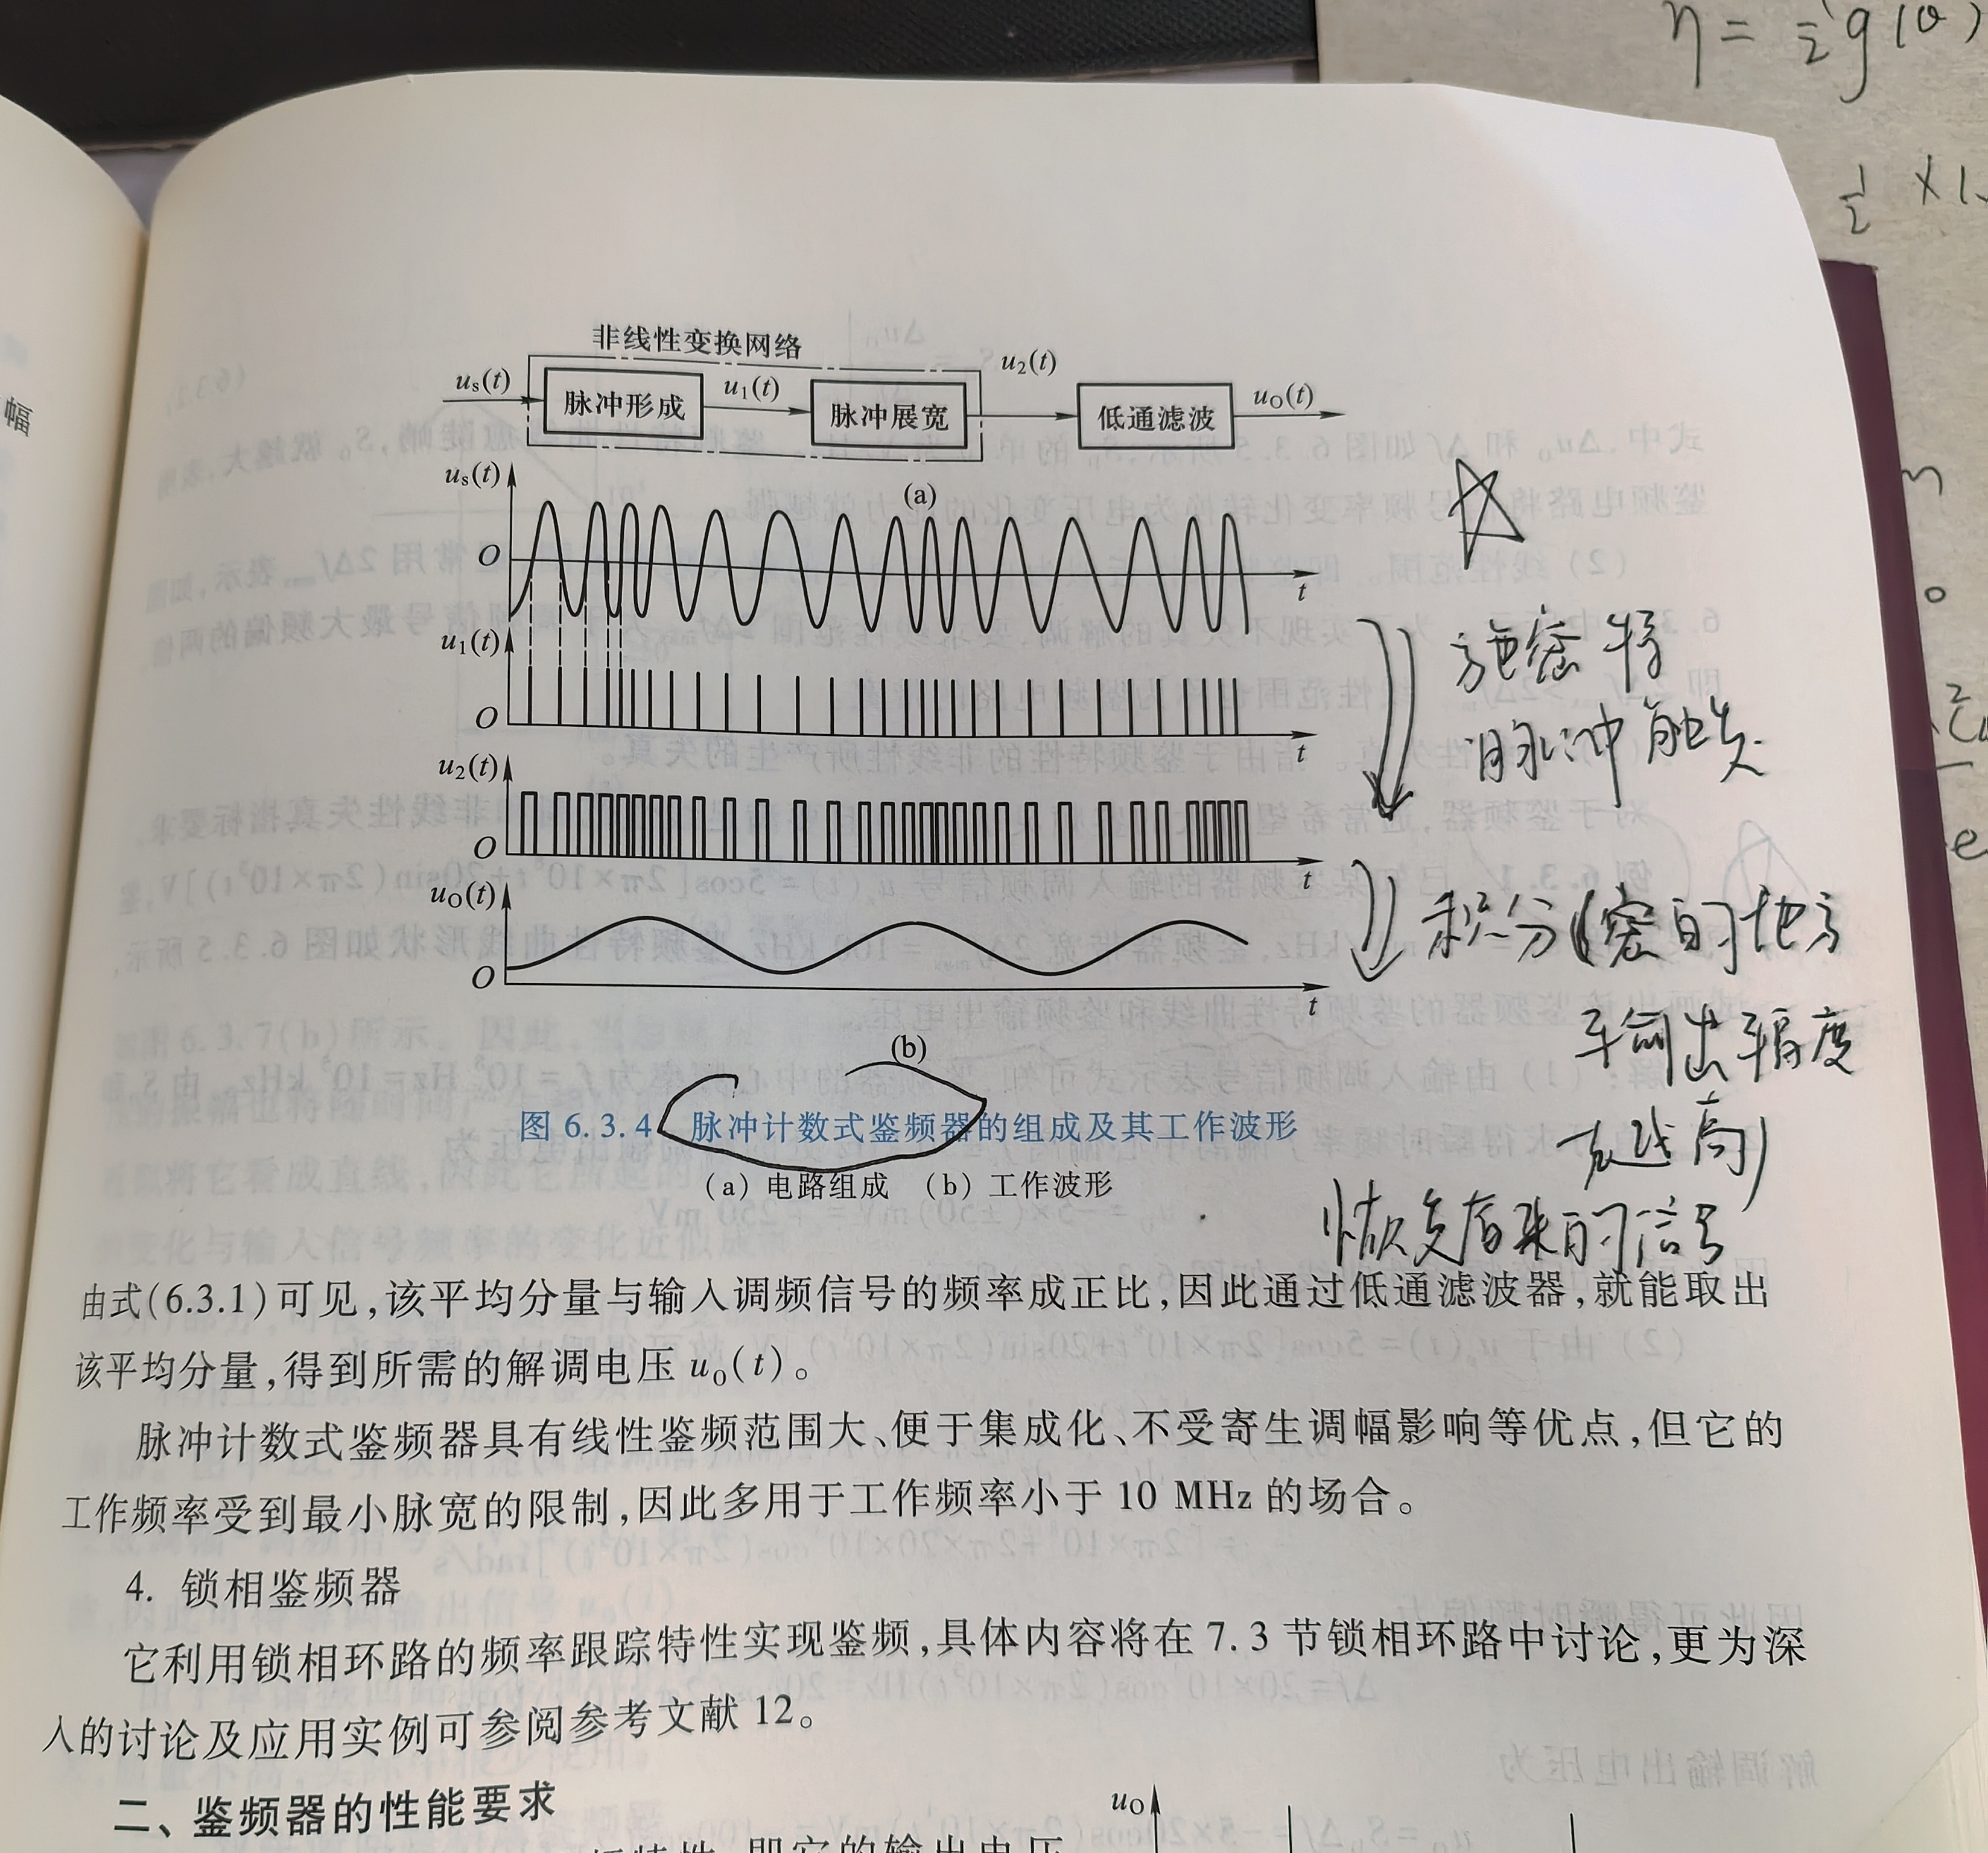 η = ½ g(θ)
½ × 1.
幅
非线性变换网络
us(t) 脉冲形成 u1(t) 脉冲展宽 u2(t) 低通滤波 uO(t)
(a)
us(t)
O
t
u1(t)
O
t
u2(t)
O
t
uO(t)
O
t
(b)
施密特
脉冲触发
积分(密的地方
输出幅度
越高)
恢复原来的信号
图 6.3.4 脉冲计数式鉴频器的组成及其工作波形
(a) 电路组成 (b) 工作波形
由式(6.3.1)可见,该平均分量与输入调频信号的频率成正比,因此通过低通滤波器,就能取出
该平均分量,得到所需的解调电压 uo(t)。
脉冲计数式鉴频器具有线性鉴频范围大、便于集成化、不受寄生调幅影响等优点,但它的
工作频率受到最小脉宽的限制,因此多用于工作频率小于 10 MHz 的场合。
4. 锁相鉴频器
它利用锁相环路的频率跟踪特性实现鉴频,具体内容将在 7.3 节锁相环路中讨论,更为深
入的讨论及应用实例可参阅参考文献 12。
二、鉴频器的性能要求
uO